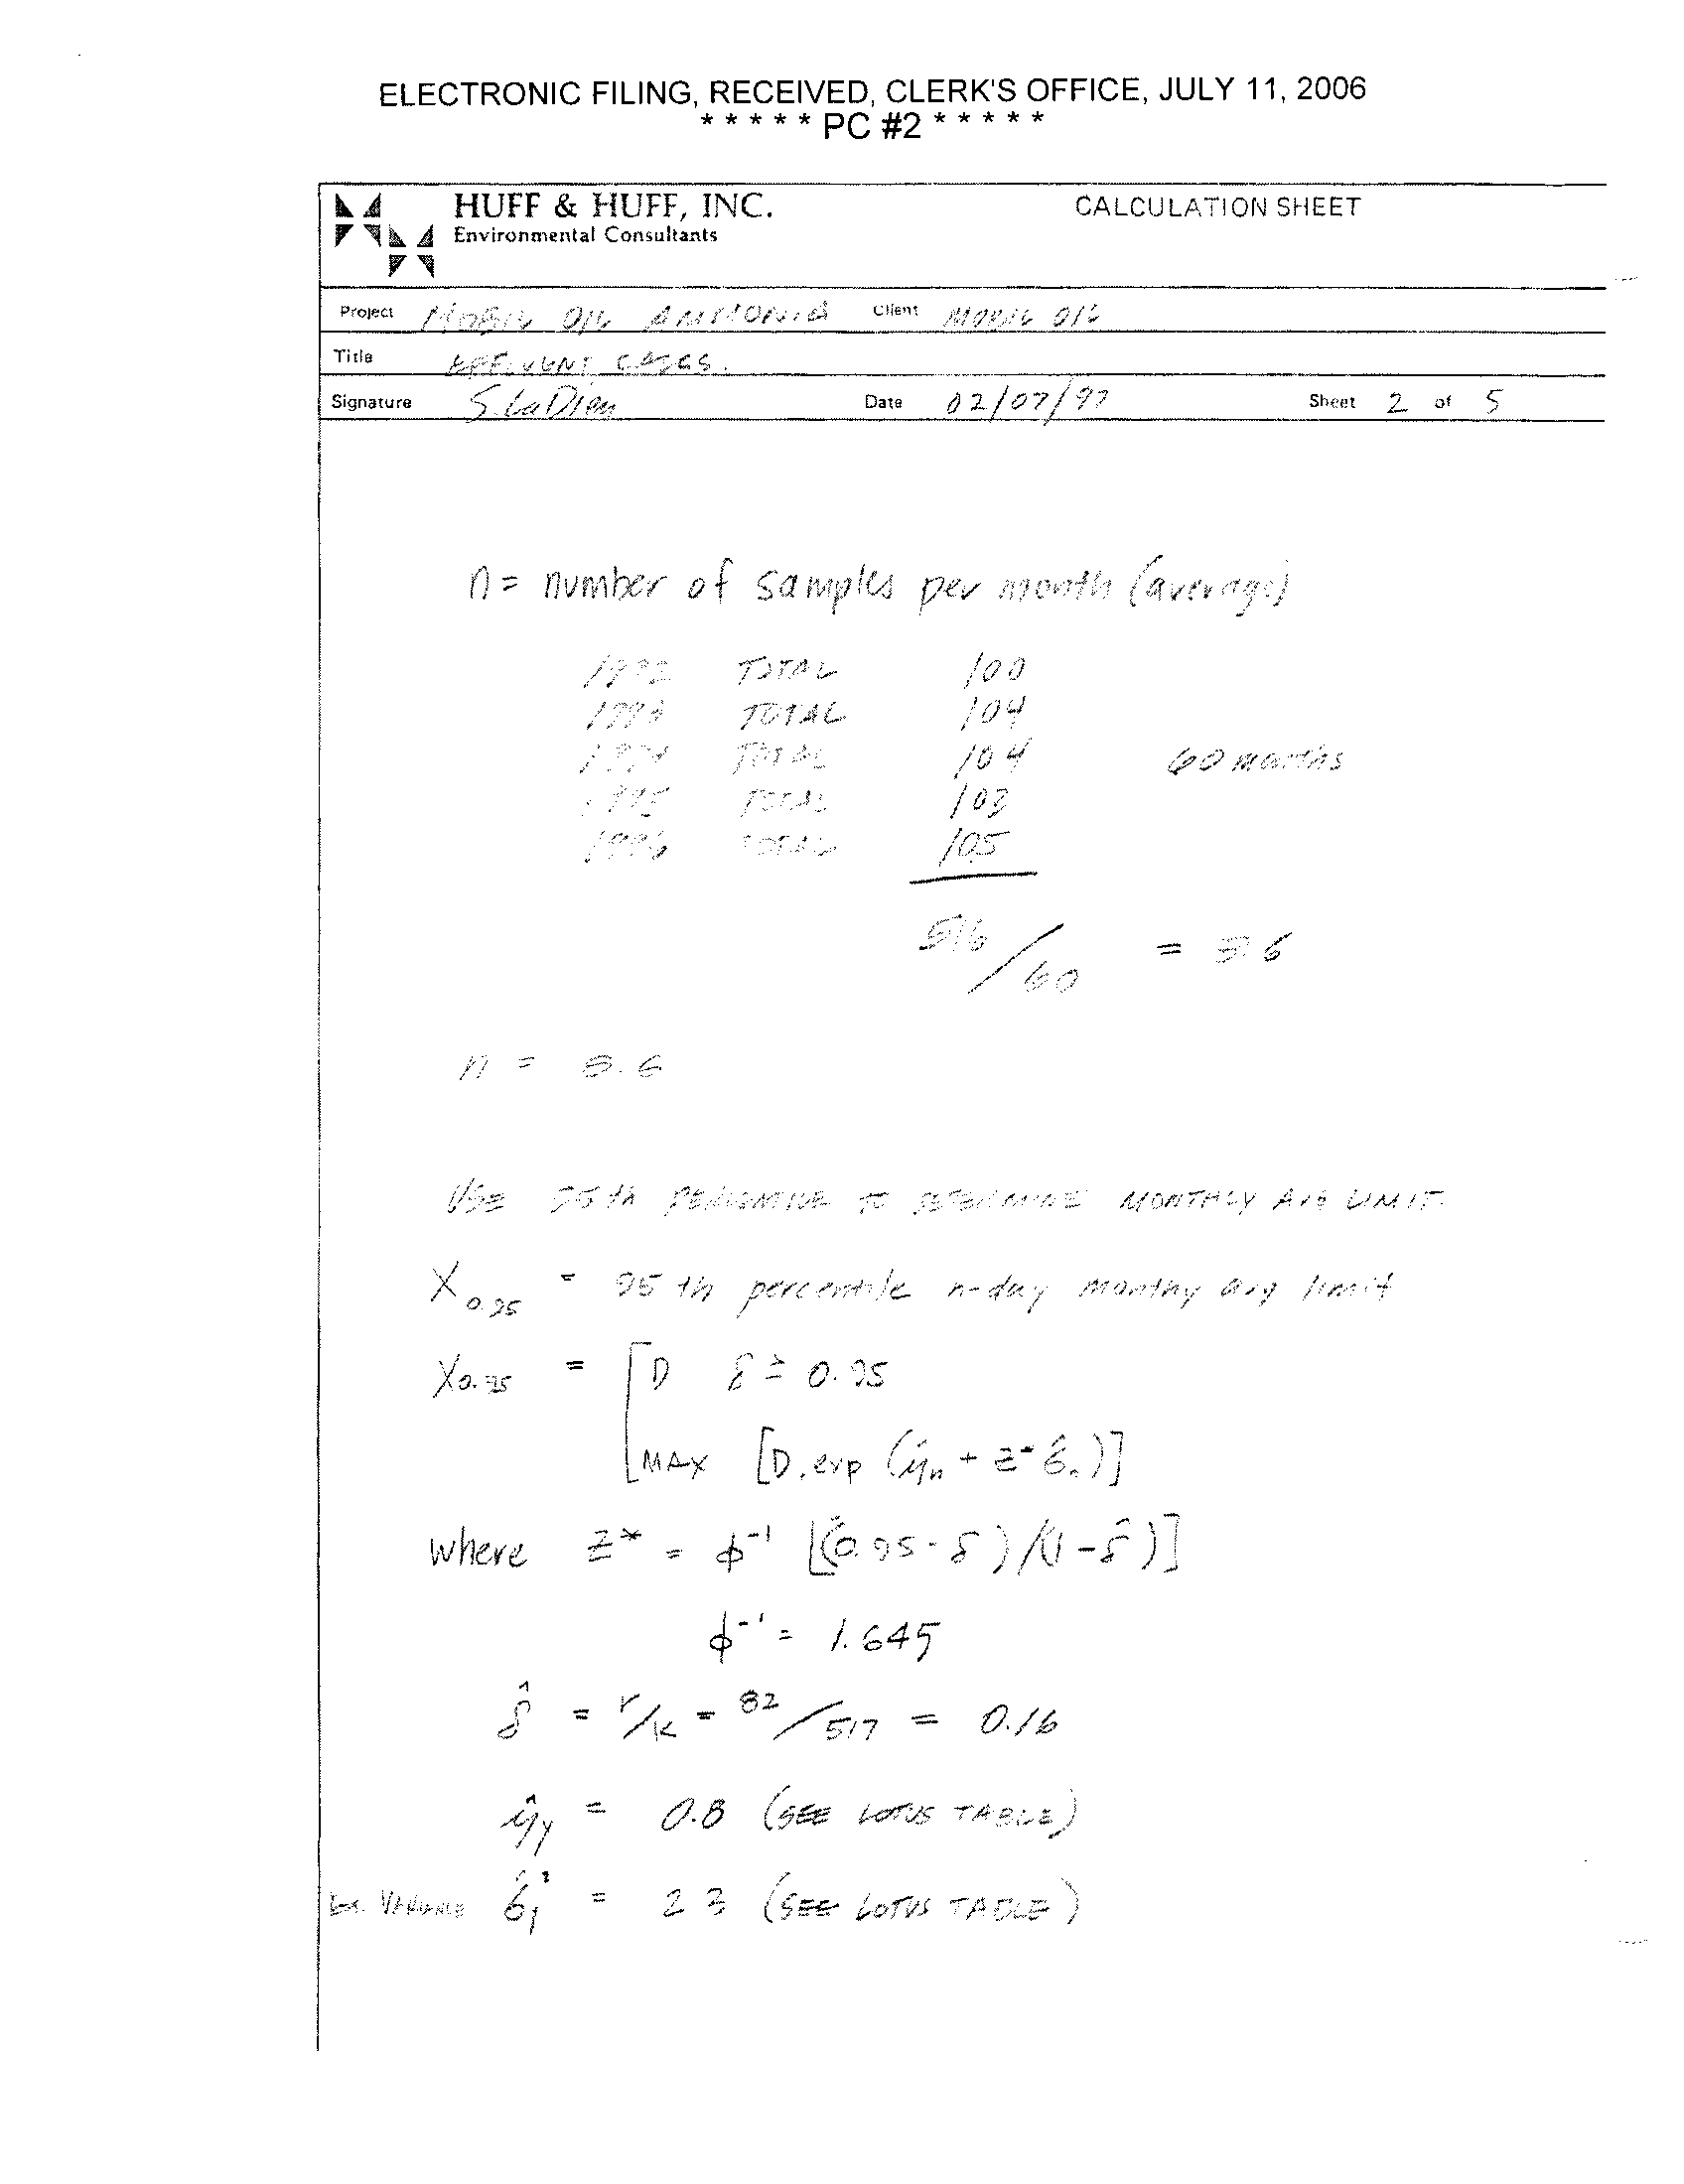 ELECTRONIC FILING, RECEIVED, CLERK'S OFFICE, JULY 11, 2006
* * * * * PC #2 * * * * *
HUFF & HUFF, INC. CALCULATION SHEET
Environmental Consultants
Project MOBIL OIL AMMONIA Client MOBIL OIL
Title EFFLUENT CALCS.
Signature S. LaDieu Date 02/07/97 Sheet 2 of 5
n = number of samples per month (average)
1992 TOTAL 100
1993 TOTAL 104
1994 TOTAL 104 60 months
1995 TOTAL 103
1996 TOTAL 105
516/60 = 8.6
n = 8.6
USE 95th PERCENTILE TO DETERMINE MONTHLY AVG LIMIT.
X0.95 = 95 th percentile n-day monthy avg limit
X0.95 = [D δ ≥ 0.95
MAX [D, exp (μ̂n + z* σ̂n)]
where z* = φ⁻¹ [(0.95 - δ̂)/(1 - δ̂)]
φ⁻¹ = 1.645
δ̂ = r/k = 82/517 = 0.16
μ̂y = 0.8 (SEE LOTUS TABLE)
VARIANCE σ̂y² = 2.3 (SEE LOTUS TABLE)